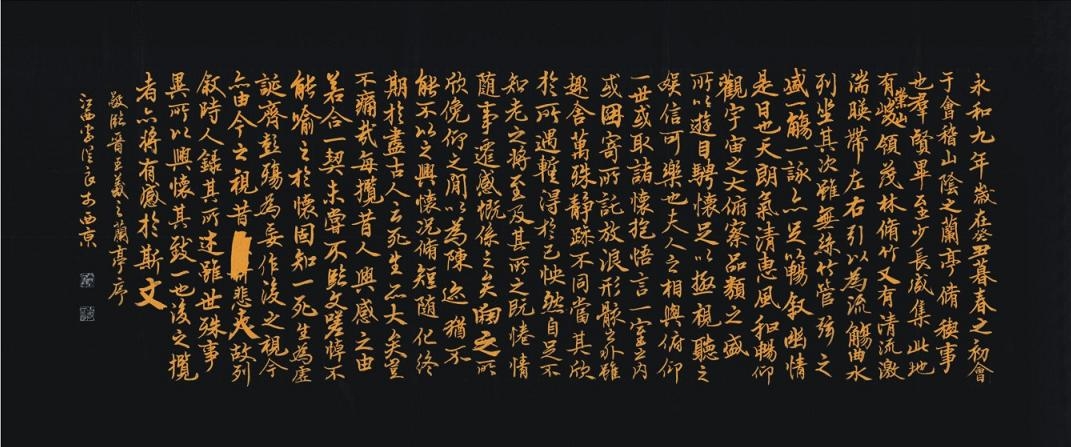 永和九年歲在癸丑暮春之初會
于會稽山陰之蘭亭脩禊事
也羣賢畢至少長咸集此地
有崇山峻領茂林脩竹又有清流激
湍暎帶左右引以為流觴曲水
列坐其次雖無絲竹管弦之
盛一觴一詠亦足以暢敘幽情
是日也天朗氣清惠風和暢仰
觀宇宙之大俯察品類之盛
所以遊目騁懷足以極視聽之
娛信可樂也夫人之相與俯仰
一世或取諸懷抱悟言一室之內
或因寄所託放浪形骸之外雖
趣舍萬殊静躁不同當其欣
於所遇蹔得於己怏然自足不
知老之將至及其所之既惓情
隨事遷感慨係之矣向之所
欣俛仰之閒以為陳迹猶不
能不以之興懷況脩短隨化終
期於盡古人云死生亦大矣豈
不痛哉每攬昔人興感之由
若合一契未嘗不臨文嗟悼不
能喻之於懷固知一死生為虛
誕齊彭殤為妄作後之視今
亦由今之視昔悲夫故列
敘時人錄其所述雖世殊事
異所以興懷其致一也後之攬
者亦將有感於斯文
敬臨晉王羲之蘭亭序
於西京